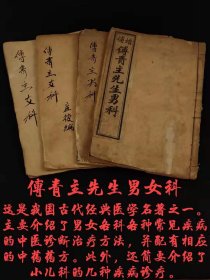 傅青主女科
傅青主女科
產後編
傅青主男科
傅青主先生男科
傅青主先生男女科
这是我国古代经典医学名著之一。
主要介绍了男女各科各种常见疾病
的中医诊断治疗方法，并配有相应
的中药药方。此外，还简要介绍了
小儿科的几种疾病诊疗。